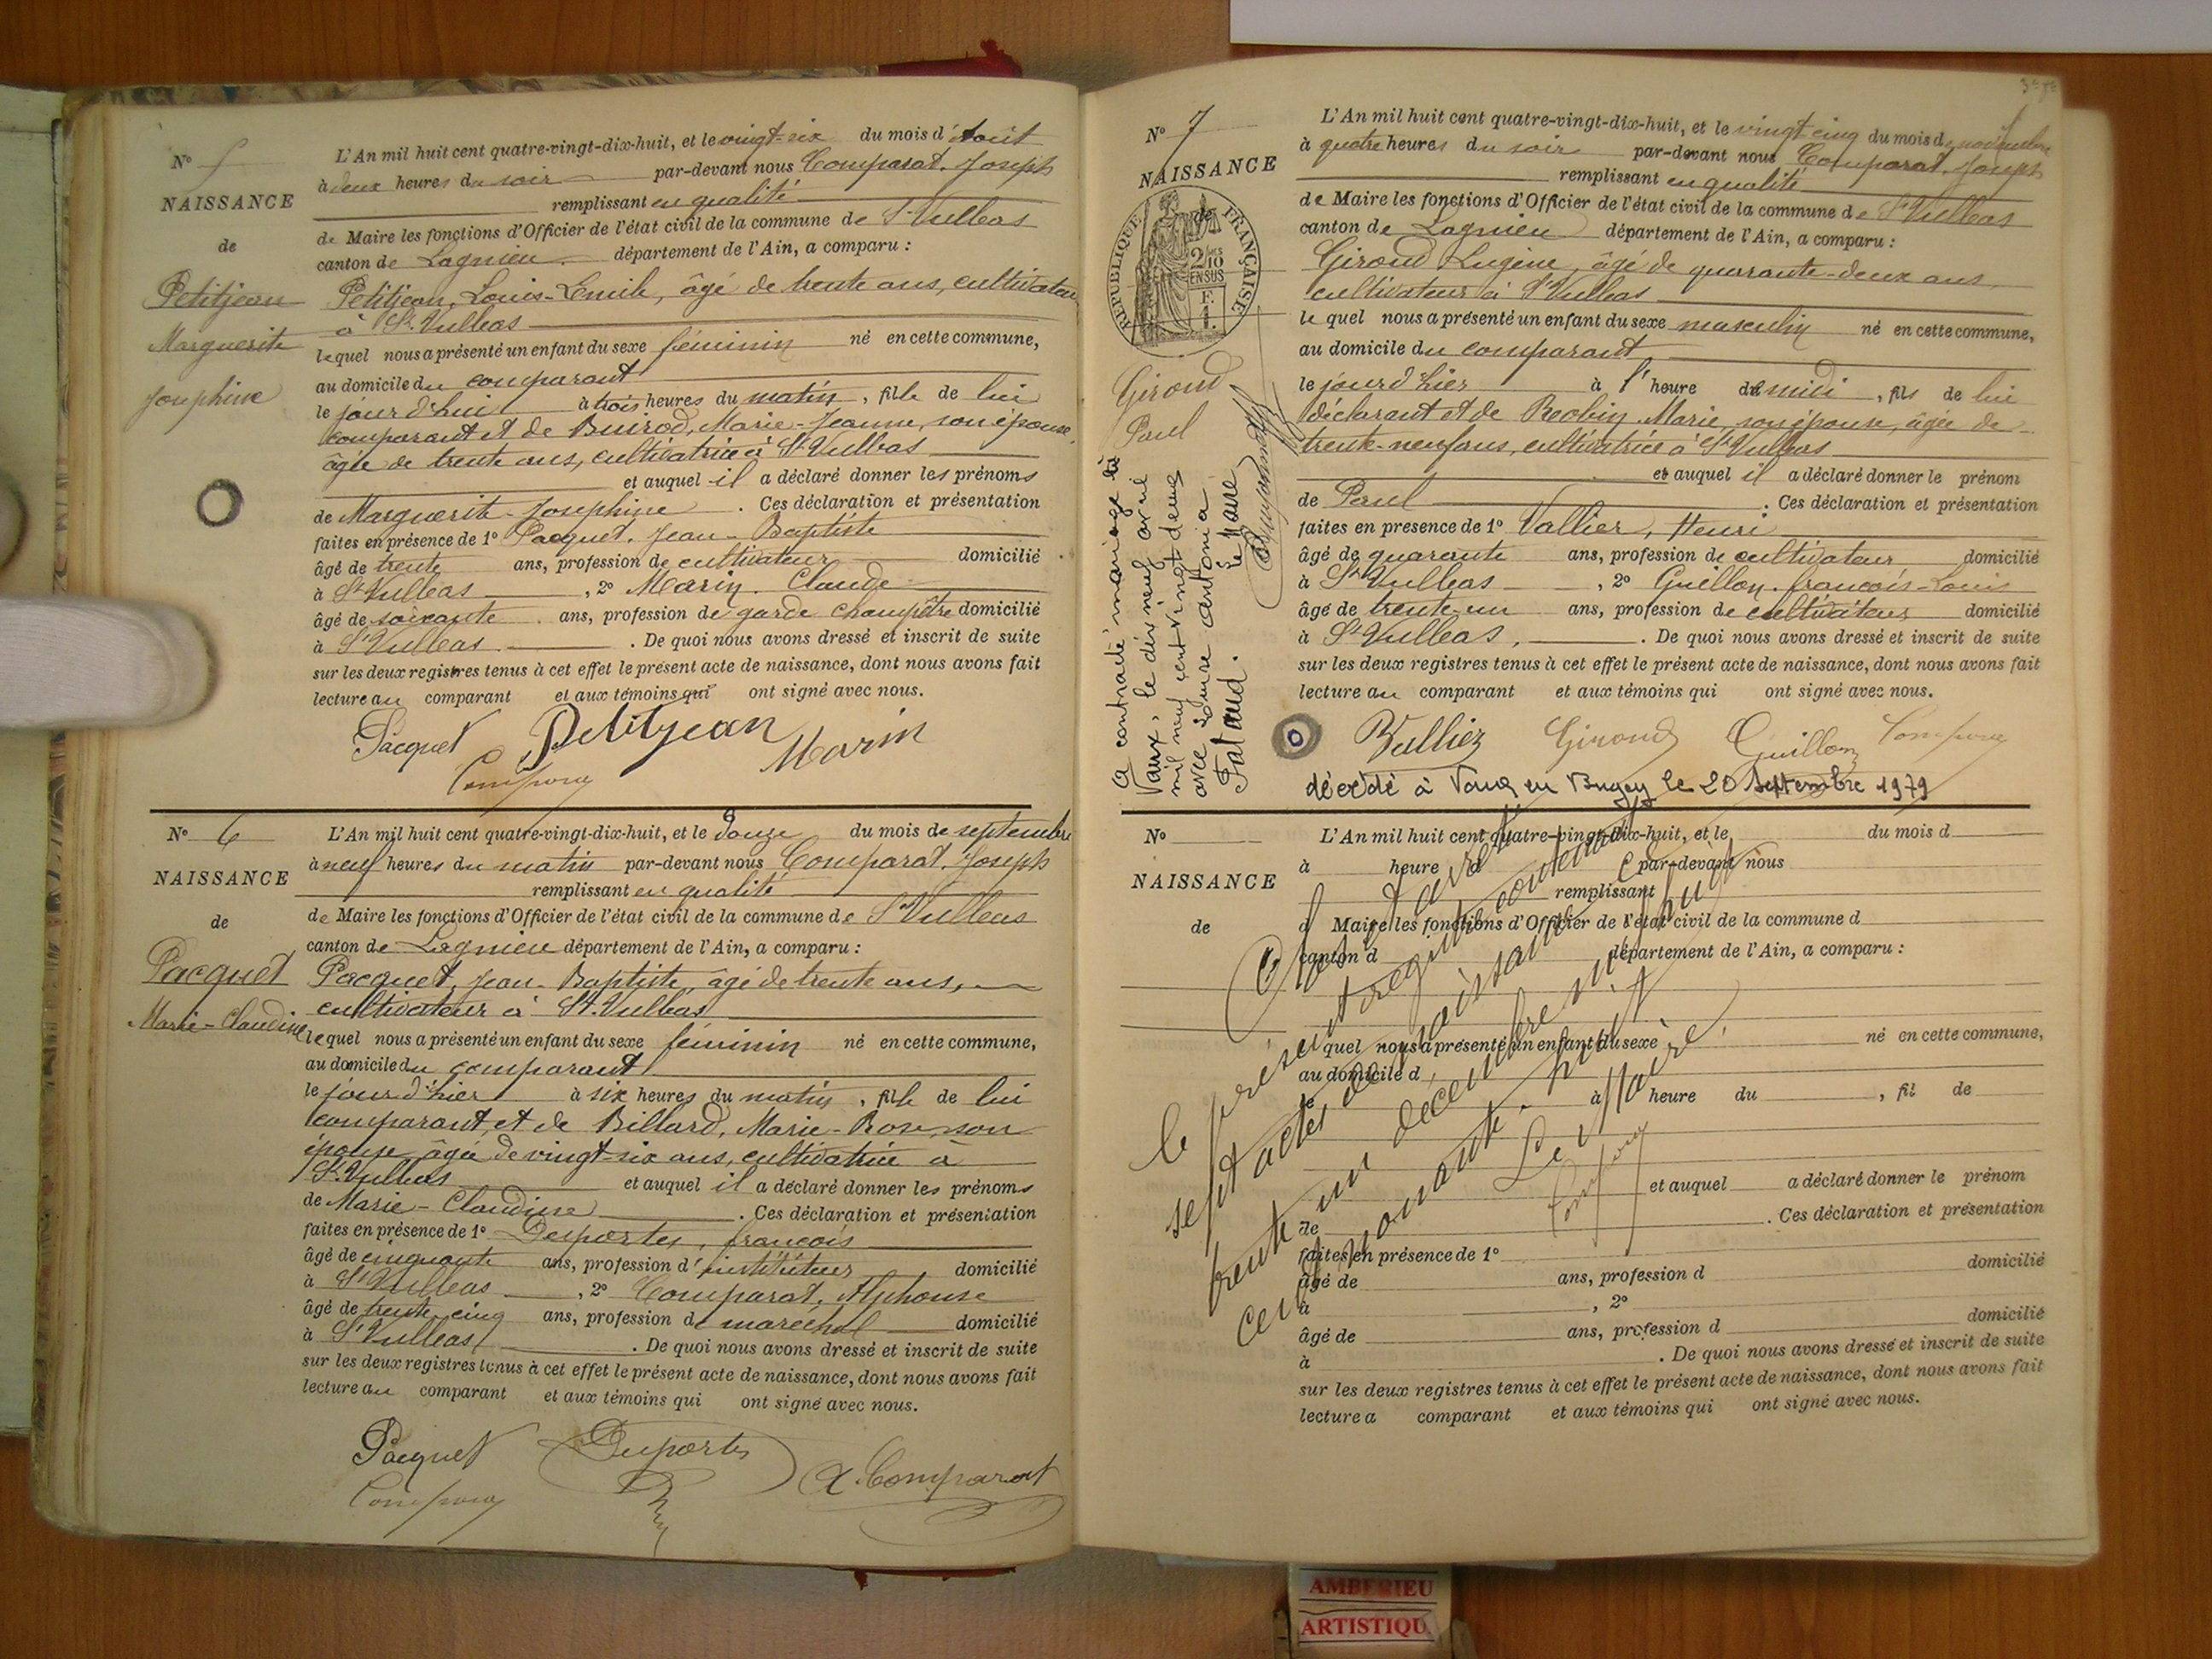 N° 5
NAISSANCE
de
Petitjean
Marguerite
Josephine
L'An mil huit cent quatre-vingt-dix-huit, et le vingt-six du mois d'Août
à deux heures du soir par-devant nous Comparat, Joseph
remplissant en qualité
de Maire les fonctions d'Officier de l'état civil de la commune de St Vulbas
canton de Lagnieu département de l'Ain, a comparu :
Petitjean, Louis-Emile, âgé de trente ans, cultivateur
à St Vulbas
lequel nous a présenté un enfant du sexe féminin né en cette commune,
au domicile du comparant
le jour d'hui à trois heures du matin, fille de lui
comparant et de Buirod, Marie-Jeanne, son épouse,
âgée de trente ans, cultivatrice à St Vulbas
et auquel il a déclaré donner les prénoms
de Marguerite-Josephine. Ces déclaration et présentation
faites en présence de 1° Pacquet, Jean-Baptiste
âgé de trente ans, profession de cultivateur domicilié
à St Vulbas, 2° Marin Claude
âgé de soixante ans, profession de garde champêtre domicilié
à St Vulbas. De quoi nous avons dressé et inscrit de suite
sur les deux registres tenus à cet effet le présent acte de naissance, dont nous avons fait
lecture au comparant et aux témoins qui ont signé avec nous.
Pacquet Petitjean Marin
N° 6
NAISSANCE
de
Pacquet
Marie-Claudine
L'An mil huit cent quatre-vingt-dix-huit, et le douze du mois de septembre
à neuf heures du matin par-devant nous Comparat, Joseph
remplissant en qualité
de Maire les fonctions d'Officier de l'état civil de la commune de St Vulbas
canton de Lagnieu département de l'Ain, a comparu :
Pacquet, Jean-Baptiste, âgé de trente ans,
cultivateur à St Vulbas
lequel nous a présenté un enfant du sexe féminin né en cette commune,
au domicile du comparant
le jour d'hier à six heures du matin, fille de lui
comparant, et de Billard, Marie-Rose, son
épouse âgée de vingt-six ans, cultivatrice à
St Vulbas et auquel il a déclaré donner les prénoms
de Marie-Claudine. Ces déclaration et présentation
faites en présence de 1° Desportes, françois
âgé de cinquante ans, profession d'instituteur domicilié
à St Vulbas, 2° Comparat, Alphonse
âgé de trente cinq ans, profession de maréchal domicilié
à St Vulbas. De quoi nous avons dressé et inscrit de suite
sur les deux registres tenus à cet effet le présent acte de naissance, dont nous avons fait
lecture au comparant et aux témoins qui ont signé avec nous.
Pacquet Desportes A. Comparat
N° 7
NAISSANCE
de
REPUBLIQUE FRANÇAISE
2/10 EN SUS
F.
1.
Giroud
Paul
a contracté mariage à
Vaux, le dix neuf avril
mil neuf cent vingt deux
avec
Pataud.
Le Maire
L'An mil huit cent quatre-vingt-dix-huit, et le vingt cinq du mois de novembre
à quatre heures du soir par-devant nous Comparat, Joseph
remplissant en qualité
de Maire les fonctions d'Officier de l'état civil de la commune de St Vulbas
canton de Lagnieu département de l'Ain, a comparu :
Giroud Eugène, âgé de quarante-deux ans,
cultivateur à St Vulbas
lequel nous a présenté un enfant du sexe masculin né en cette commune,
au domicile du comparant
le jour d'hier à l'heure de midi, fils de lui
déclarant et de Robin, Marie, son épouse, âgée de
trente-neuf ans, cultivatrice à St Vulbas
et auquel il a déclaré donner le prénom
de Paul. Ces déclaration et présentation
faites en présence de 1° Vallier, Henri
âgé de quarante ans, profession de cultivateur domicilié
à St Vulbas, 2° Guillon, françois-Louis
âgé de trente-un ans, profession de cultivateur domicilié
à St Vulbas. De quoi nous avons dressé et inscrit de suite
sur les deux registres tenus à cet effet le présent acte de naissance, dont nous avons fait
lecture au comparant et aux témoins qui ont signé avec nous.
Vallier Giroud Guillon
décédé à Vaux en Bugey le 20 Septembre 1979
N°
NAISSANCE
de
L'An mil huit cent quatre-vingt-dix-huit, et le du mois d
à heure d par-devant nous
remplissant
d Maire les fonctions d'Officier de l'état civil de la commune d
canton d département de l'Ain, a comparu :
quel nous a présenté un enfant du sexe né en cette commune,
au domicile d
le à heure du , fil de
et auquel a déclaré donner le prénom
de . Ces déclaration et présentation
faites en présence de 1°
âgé de ans, profession d domicilié
à , 2°
âgé de ans, profession d domicilié
à . De quoi nous avons dressé et inscrit de suite
sur les deux registres tenus à cet effet le présent acte de naissance, dont nous avons fait
lecture a comparant et aux témoins qui ont signé avec nous.
le présent registre contenant
sept actes de naissance
trente un décembre mil huit
cent nonante-huit
Le Maire.
AMBERIEU
ARTISTIQU